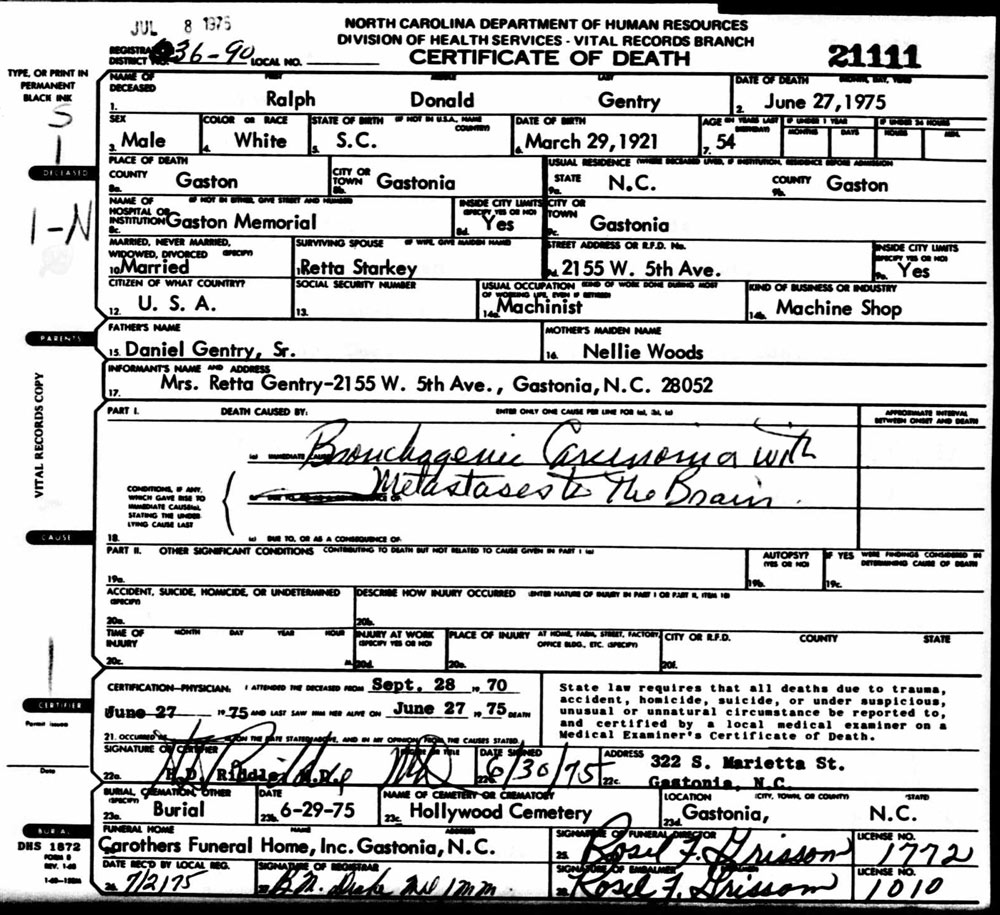 JUL 8 1975
NORTH CAROLINA DEPARTMENT OF HUMAN RESOURCES
DIVISION OF HEALTH SERVICES - VITAL RECORDS BRANCH
REGISTRATION DISTRICT NO. 36-90 LOCAL NO.
CERTIFICATE OF DEATH
21111
TYPE, OR PRINT IN
PERMANENT
BLACK INK
NAME OF DECEASED FIRST MIDDLE LAST DATE OF DEATH (MONTH, DAY, YEAR)
1. Ralph Donald Gentry 2. June 27, 1975
SEX COLOR OR RACE STATE OF BIRTH (IF NOT IN U.S.A., NAME COUNTRY) DATE OF BIRTH AGE (IN YEARS LAST BIRTHDAY) IF UNDER 1 YEAR IF UNDER 24 HOURS
MONTHS DAYS HOURS MIN.
3. Male 4. White 5. S.C. 6. March 29, 1921 7. 54
DECEASED
PLACE OF DEATH USUAL RESIDENCE (WHERE DECEASED LIVED, IF INSTITUTION, RESIDENCE BEFORE ADMISSION)
COUNTY CITY OR TOWN STATE COUNTY
8a. Gaston 8b. Gastonia 9a. N.C. 9b. Gaston
1-N
NAME OF HOSPITAL OR INSTITUTION (IF NOT IN EITHER, GIVE STREET AND NUMBER) INSIDE CITY LIMITS (SPECIFY YES OR NO) CITY OR TOWN
8c. Gaston Memorial 8d. Yes 9c. Gastonia
MARRIED, NEVER MARRIED, WIDOWED, DIVORCED (SPECIFY) SURVIVING SPOUSE (IF WIFE, GIVE MAIDEN NAME) STREET ADDRESS OR R.F.D. No. INSIDE CITY LIMITS (SPECIFY YES OR NO)
10. Married Retta Starkey 9d. 2155 W. 5th Ave. 9e. Yes
CITIZEN OF WHAT COUNTRY? SOCIAL SECURITY NUMBER USUAL OCCUPATION (KIND OF WORK DONE DURING MOST OF WORKING LIFE, EVEN IF RETIRED) KIND OF BUSINESS OR INDUSTRY
12. U. S. A. 13. 14a. Machinist 14b. Machine Shop
PARENTS
FATHER'S NAME MOTHER'S MAIDEN NAME
15. Daniel Gentry, Sr. 16. Nellie Woods
INFORMANT'S NAME AND ADDRESS
17. Mrs. Retta Gentry-2155 W. 5th Ave., Gastonia, N.C. 28052
VITAL RECORDS COPY
PART I. DEATH CAUSED BY: ENTER ONLY ONE CAUSE PER LINE FOR (a), (b), (c) APPROXIMATE INTERVAL BETWEEN ONSET AND DEATH
(a) IMMEDIATE CAUSE Bronchogenic Carcinoma with
Metastases to The Brain.
CONDITIONS, IF ANY,
WHICH GAVE RISE TO
IMMEDIATE CAUSE(a),
STATING THE UNDER-
LYING CAUSE LAST
CAUSE
18. (c) DUE TO, OR AS A CONSEQUENCE OF:
PART II. OTHER SIGNIFICANT CONDITIONS CONTRIBUTING TO DEATH BUT NOT RELATED TO CAUSE GIVEN IN PART I (a) AUTOPSY? (YES OR NO) IF YES WERE FINDINGS CONSIDERED IN DETERMINING CAUSE OF DEATH
19a. 19b. 19c.
ACCIDENT, SUICIDE, HOMICIDE, OR UNDETERMINED (SPECIFY) DESCRIBE HOW INJURY OCCURRED (ENTER NATURE OF INJURY IN PART I OR PART II, ITEM 18)
20a. 20b.
TIME OF INJURY MONTH DAY YEAR HOUR INJURY AT WORK (SPECIFY YES OR NO) PLACE OF INJURY AT HOME, FARM, STREET, FACTORY, OFFICE BLDG., ETC. (SPECIFY) CITY OR R.F.D. COUNTY STATE
20c. M. 20d. 20e. 20f.
CERTIFICATION—PHYSICIAN: I ATTENDED THE DECEASED FROM Sept. 28 19 70
June 27 19 75 AND LAST SAW HIM HER ALIVE ON June 27 19 75 DEATH
21. OCCURRED ON THE DATE STATED ABOVE, AND IN MY OPINION FROM THE CAUSES STATED.
State law requires that all deaths due to trauma,
accident, homicide, suicide, or under suspicious,
unusual or unnatural circumstance be reported to,
and certified by a local medical examiner on a
Medical Examiner's Certificate of Death.
CERTIFIER
Permit Issued
Date
SIGNATURE OF CERTIFIER DEGREE OR TITLE DATE SIGNED ADDRESS 322 S. Marietta St.
22a. Riddle M.D. MD 22b. 6/30/75 22c. Gastonia, N.C.
BURIAL, CREMATION, OTHER (SPECIFY) DATE NAME OF CEMETERY OR CREMATORY LOCATION (CITY, TOWN, OR COUNTY) STATE
23a. Burial 23b. 6-29-75 23c. Hollywood Cemetery 23d. Gastonia, N.C.
BURIAL
FUNERAL HOME NAME ADDRESS SIGNATURE OF FUNERAL DIRECTOR LICENSE NO.
24. Carothers Funeral Home, Inc. Gastonia, N.C. 25. Rosel F. Grissom 1772
DHS 1872
FORM 8
REV. 1-68
DATE REC'D BY LOCAL REG. SIGNATURE OF REGISTRAR SIGNATURE OF EMBALMER LICENSE NO.
26. 7/2/75 27. 28. Rosel F. Grissom 1010